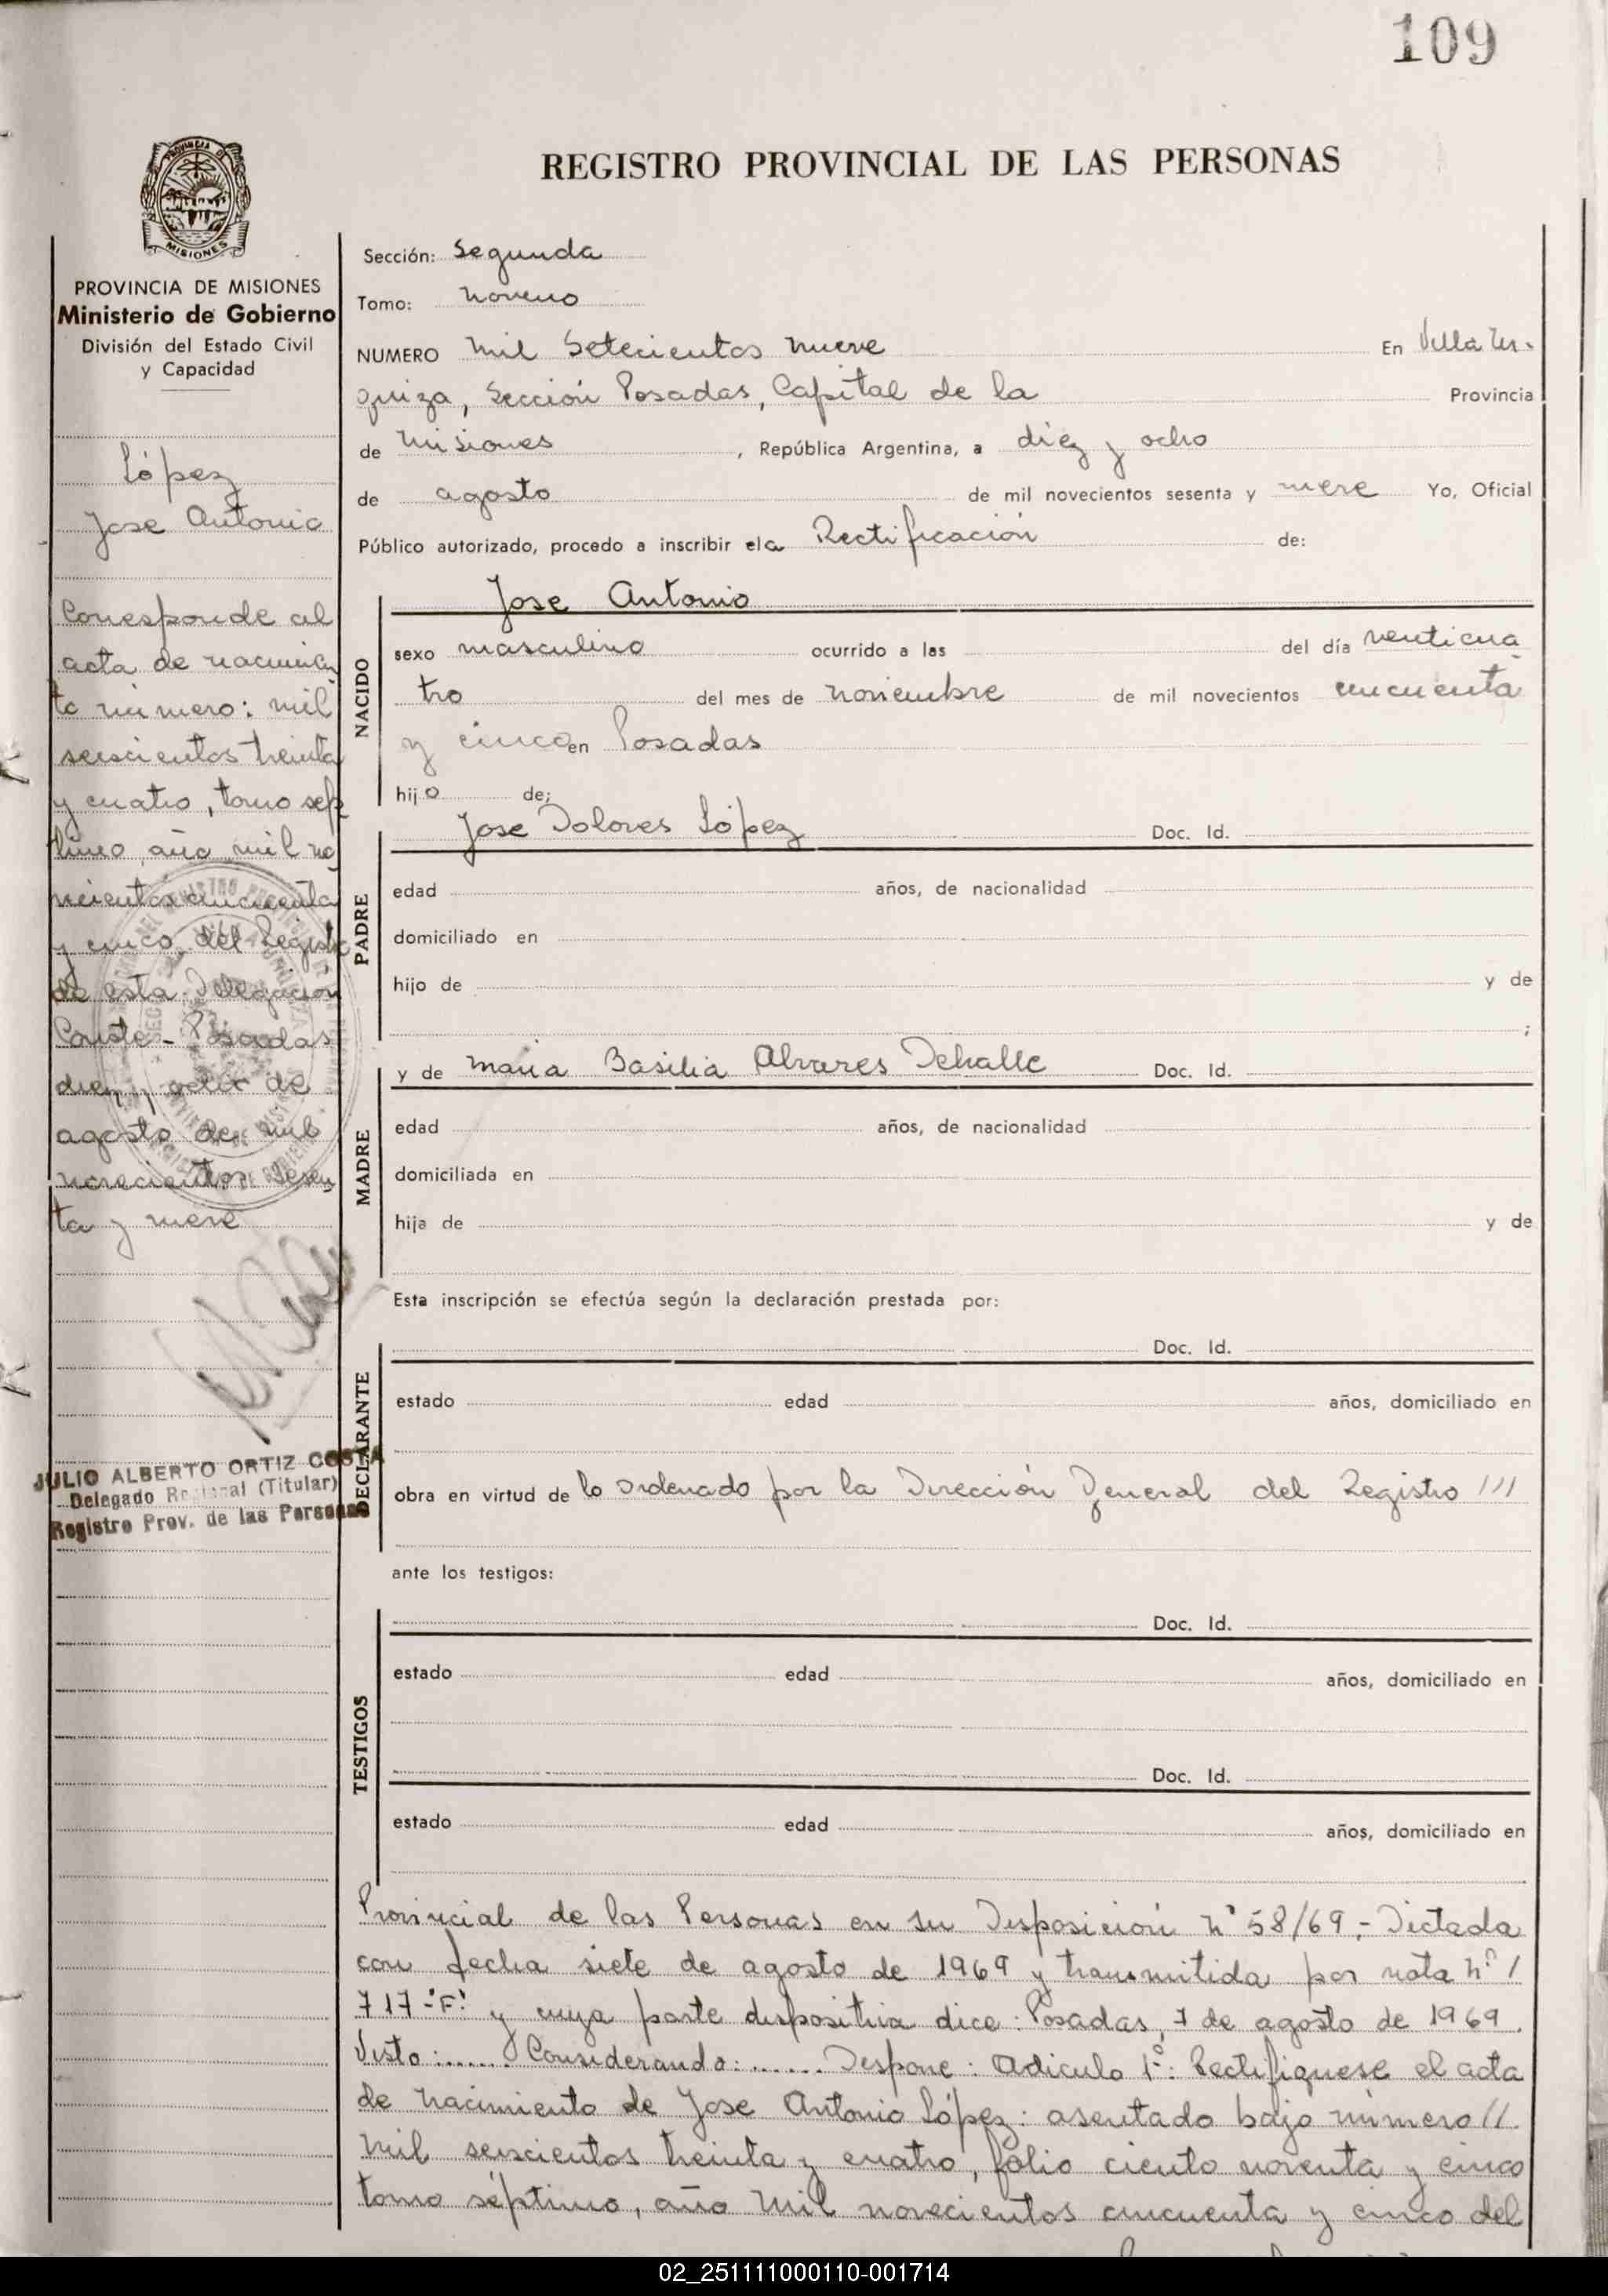 109
REGISTRO PROVINCIAL DE LAS PERSONAS
PROVINCIA DE MISIONES
Ministerio de Gobierno
División del Estado Civil
y Capacidad
López
Jose Antonio
Corresponde al
acta de nacimien
to número: mil
seiscientos treinta
y cuatro, tomo sép
timo, año mil no
vecientos cincuenta
y cinco, del Registro
de esta Delegación
Conste - Posadas
diez y ocho de
agosto de mil
novecientos sesen
ta y nueve
JULIO ALBERTO ORTIZ COSTA
Delegado Regional (Titular)
Registro Prov. de las Personas
Sección: Segunda
Tomo: noveno
NUMERO mil setecientos nueve En Villa Ur-
quiza, Sección Posadas, Capital de la Provincia
de Misiones, República Argentina, a diez y ocho
de agosto de mil novecientos sesenta y nueve Yo, Oficial
Público autorizado, procedo a inscribir ela Rectificación de:
NACIDO
Jose Antonio
sexo masculino ocurrido a las del día venticua
tro del mes de noviembre de mil novecientos cincuenta
y cinco en Posadas
hijo de;
PADRE
Jose Dolores López Doc. Id.
edad años, de nacionalidad
domiciliado en
hijo de y de
;
MADRE
y de Maria Basilia Alvares Dehalle Doc. Id.
edad años, de nacionalidad
domiciliada en
hija de y de
Esta inscripción se efectúa según la declaración prestada por:
DECLARANTE
Doc. Id.
estado edad años, domiciliado en
obra en virtud de lo ordenado por la Dirección General del Registro ///
ante los testigos:
TESTIGOS
Doc. Id.
estado edad años, domiciliado en
Doc. Id.
estado edad años, domiciliado en
Provincial de las Personas en su Disposición n° 58/69.- Dictada
con fecha siete de agosto de 1969 y transmitida por nota n° /
717-"F" y cuya parte dispositiva dice: Posadas, 7 de agosto de 1969.
Visto:...... Considerando:...... Dispone: Adiculo 1°: Rectifiquese el acta
de nacimiento de Jose Antonio López: asentado bajo número //
mil seiscientos treinta y cuatro, folio ciento noventa y cinco
tomo séptimo, año mil novecientos cincuenta y cinco del
02_251111000110-001714